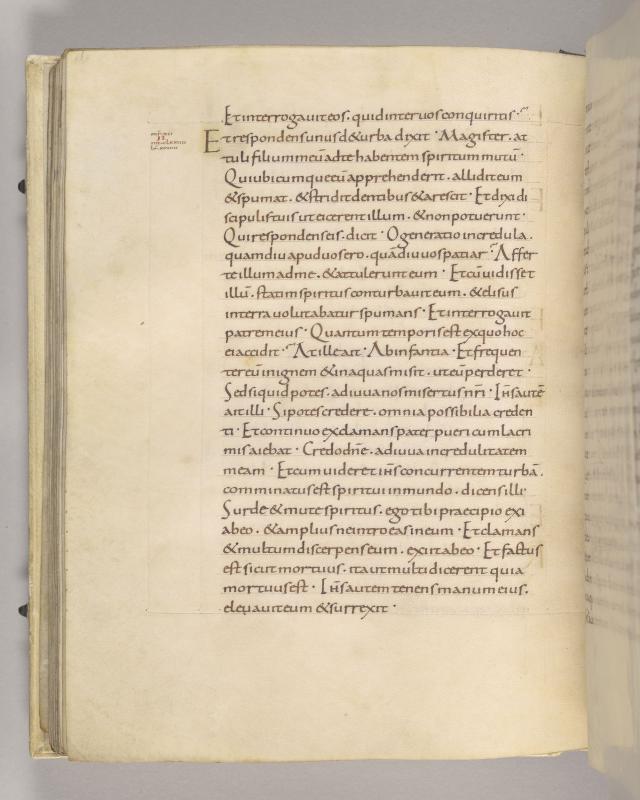 Et interrogavit eos · quid inter vos conquiritis ·
Et respondens unus de turba dixit · Magister · at
tuli filium meū ad te habentem spiritum mutū ·
Qui ubicumque eū apprehenderit · allidit eum
& spumat · & stridit dentibus & arescit · Et dixi di
scipulis tuis ut eicerent illum · & non potuerunt ·
Qui respondens eis · dicit · O generatio incredula ·
quamdiu apud vos ero · quādiu vos patiar · Affer
te illum ad me · & attulerunt eum · Et cū vidisset
illū · statim spiritus conturbavit eum · & elisus
in terra volutabatur spumans · Et interrogavit
patrem eius · Quantum temporis est ex quo hoc
ei accidit · At ille ait · Ab infantia · Et frequen
ter eū in ignem & in aquas misit · ut eū perderet ·
Sed si quid potes · adiuva nos misertus nr̄i · Ih̄s autē
ait illi · Si potes credere · omnia possibilia creden
ti · Et continuo exclamans pater pueri cum lacri
mis aiebat · Credo dn̄e · adiuva incredulitatem
meam · Et cum videret ih̄s concurrentem turbā ·
comminatus est spiritui inmundo · dicens illi·
Surde & mute spiritus · ego tibi praecipio exi
ab eo · & amplius ne introeas in eum · Et clamans
& multum discerpens eum · exiit ab eo · Et factus
est sicut mortuus · ita ut multi dicerent quia
mortuus est · Ih̄s autem tenens manum eius ·
elevavit eum & surrexit ·